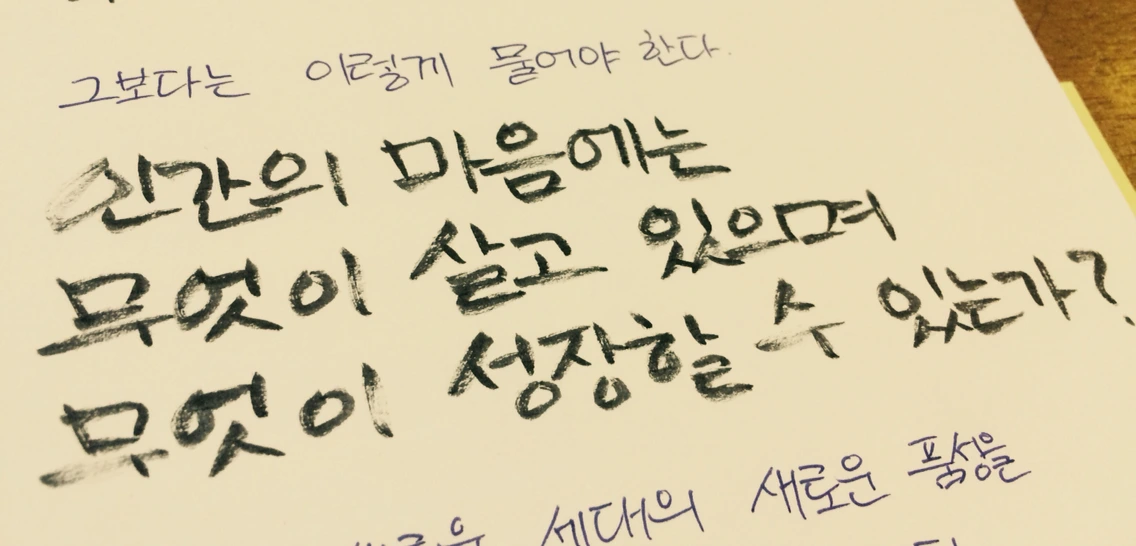 그보다는 이렇게 물어야 한다.
인간의 마음에는
무엇이 살고 있으며
무엇이 성장할 수 있는가?
세대의 새로운 품성을